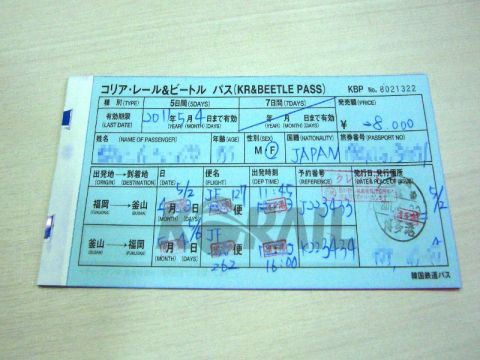 コリア・レール&ビートル パス(KR&BEETLE PASS) KBP No. 8021322
種 別(TYPE) 5日間(5DAYS) 7日間(7DAYS) 発売額(PRICE)
有効期限 2011年5月4日まで有効 年 月 日まで有効 ¥ 28,000
(LAST DATE) (YEAR) (MONTH) (DAYS) (YEAR) (MONTH) (DAYS)
姓名(NAME OF PASSENGER) 年齢(AGE) 性別(SEX) 国籍(NATIONALITY) 旅券番号(PASSPORT NO)
M F JAPAN
出発地 → 到着地 日 便 出発時刻 予約番号 発行日・発行箇所
(ORIGIN) (DESTINATION) (DAYS) (FLIGHT) (DEP TIME) (REFERENCE) (DATE & PLACE OF ISSUE)
5/2 JF 127 11:45
福岡 → 釜山 月 日 便 J003433 5/2
(FUKUOKA) (BUSAN) (MONTH) (DAYS)
KORAIL
JF
釜山 → 福岡 月 日 便 K003434
(BUSAN) (FUKUOKA) (MONTH) (DAYS) 262 16:00
韓国鉄道パス